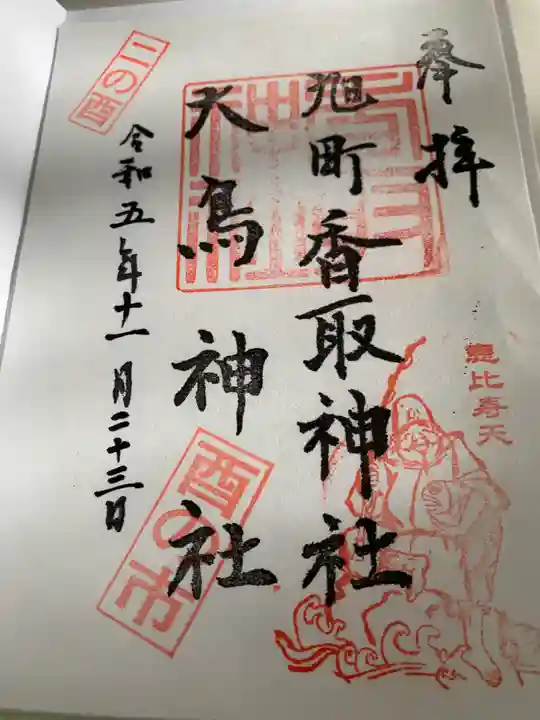 奉拝
恵比寿天
旭町香取神社
大鳥神社
酉の市
二の酉
令和五年十一月二十三日